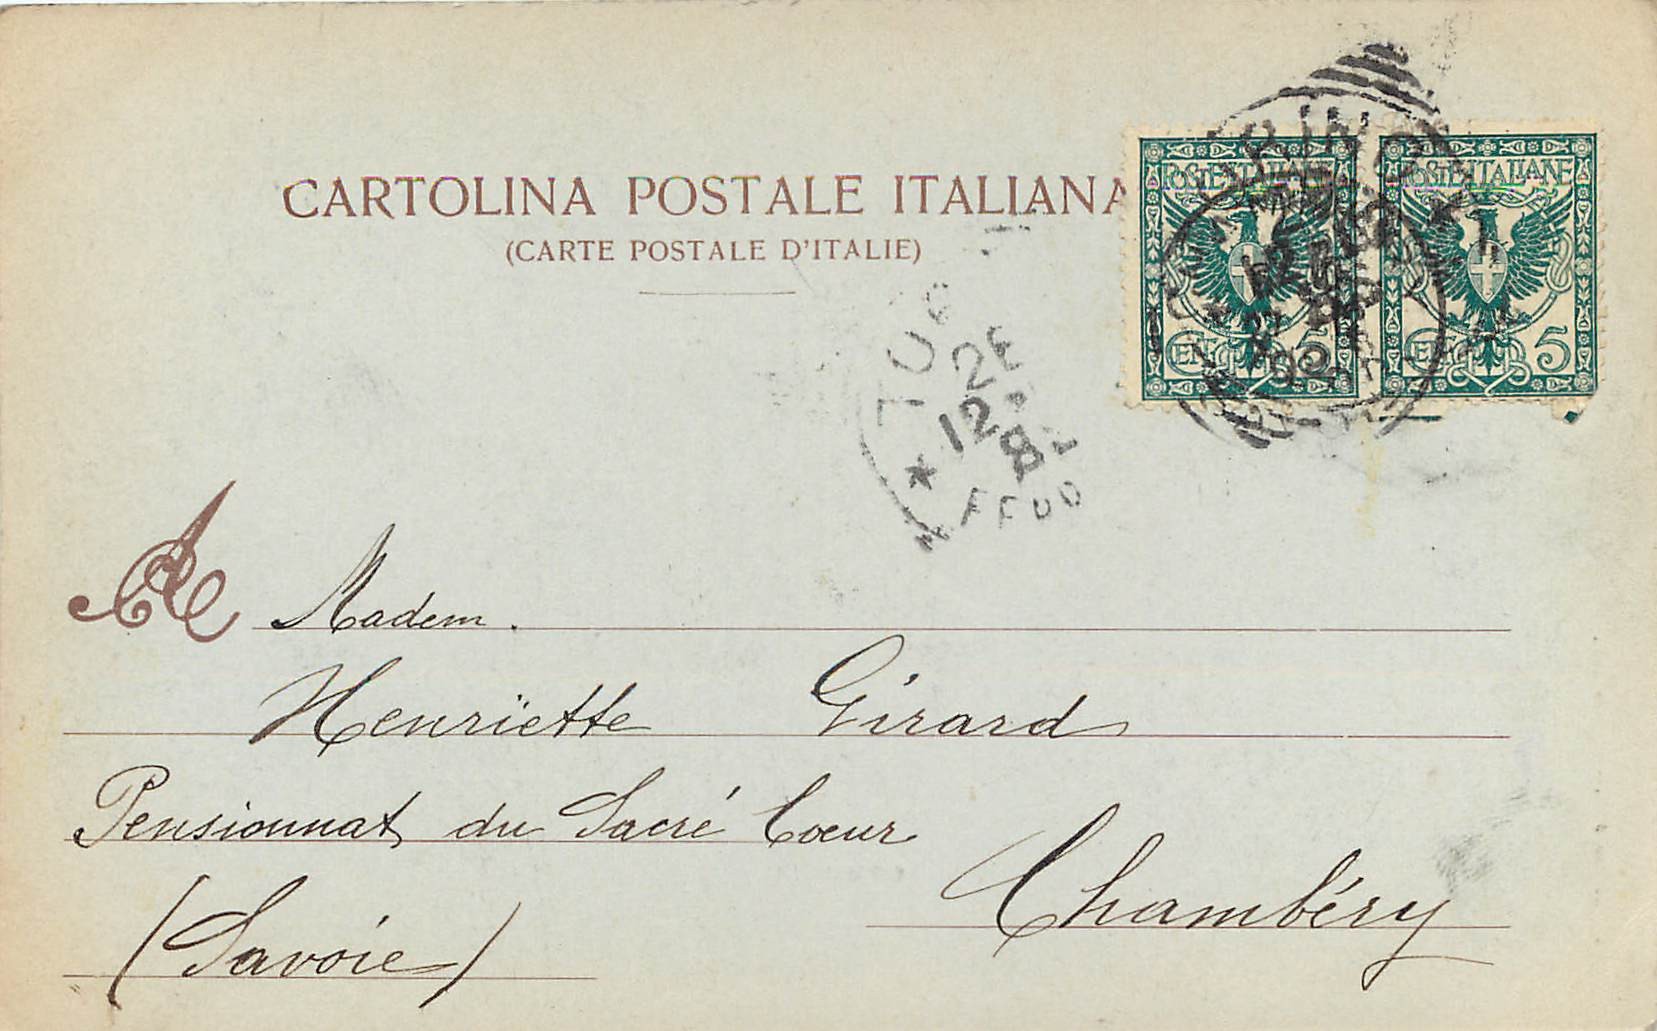 CARTOLINA POSTALE ITALIANA
(CARTE POSTALE D'ITALIE)
POSTE ITALIANE
POSTE ITALIANE
CENT. 5
CENT. 5
12
8
A
Madem.
Henriette Girard
Pensionnat du Sacré Coeur
Chambéry
(Savoie)